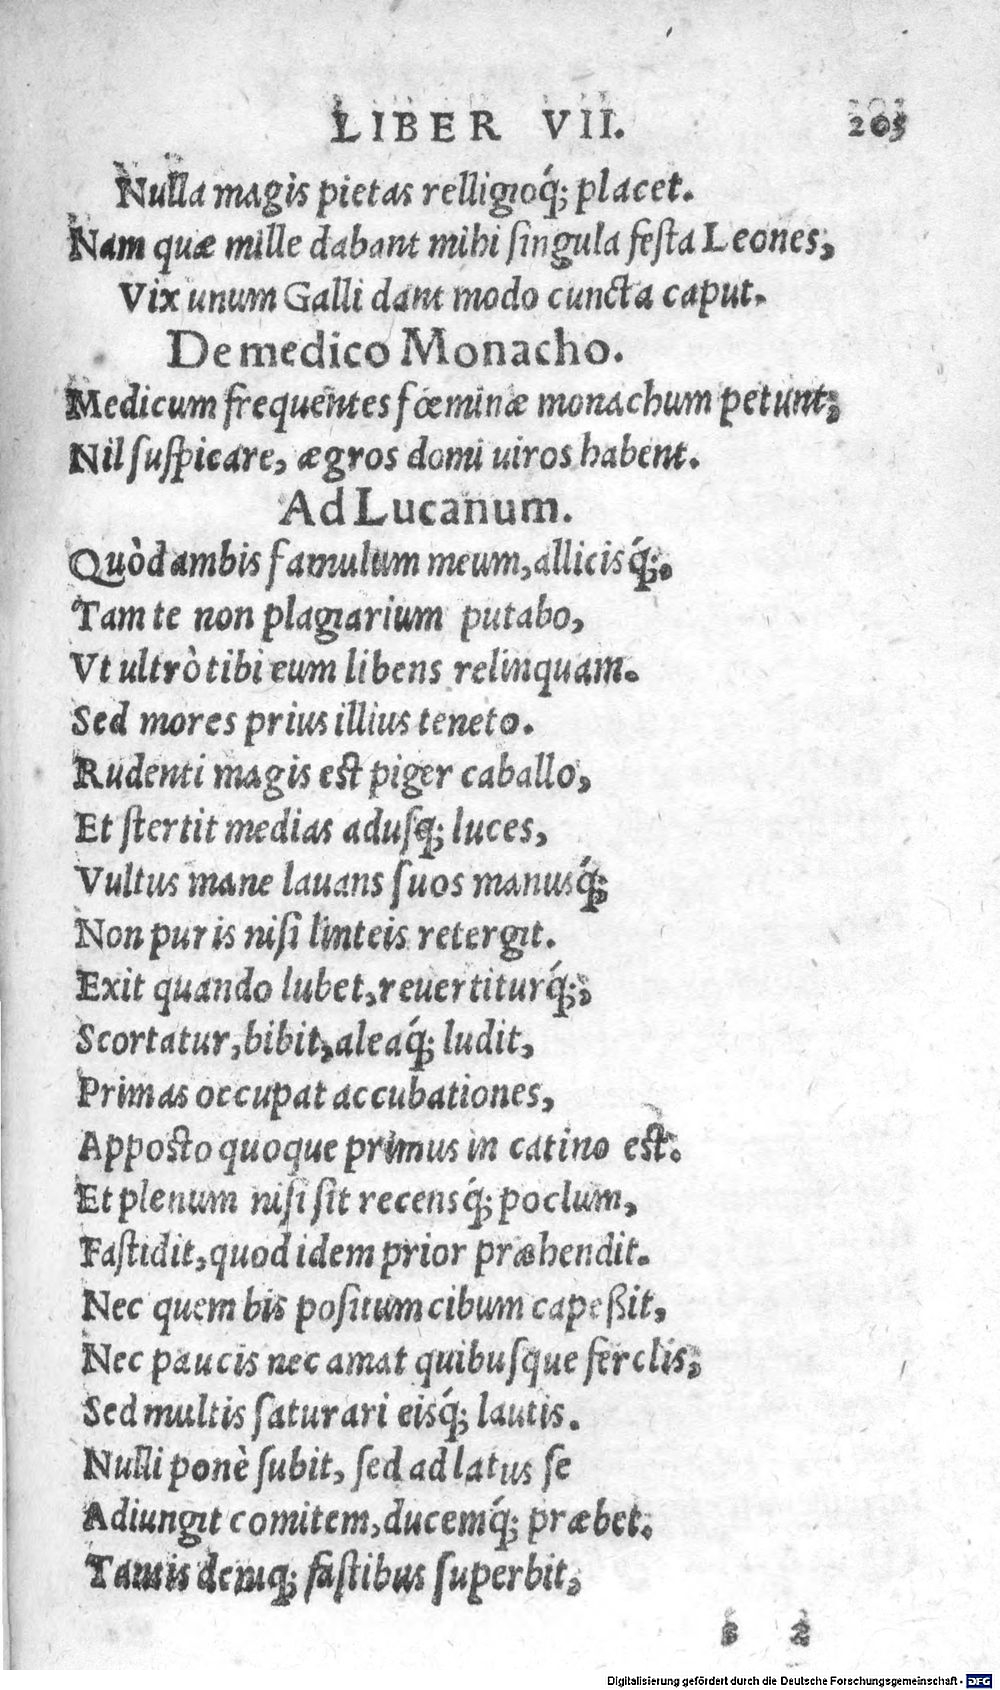 LIBER VII. 205
Nulla magis pietas relligioq́; placet.
Nam quæ mille dabant mihi singula festa Leones,
Vix unum Galli dant modo cuncta caput.
De medico Monacho.
Medicum frequentes fœminæ monachum petunt,
Nil suspicare, ægros domi uiros habent.
Ad Lucanum.
Quòd ambis famulum meum, allicisq́;.
Tam te non plagiarium putabo,
Vt ultrò tibi eum libens relinquam.
Sed mores prius illius teneto.
Rudenti magis est piger caballo,
Et stertit medias adusq; luces,
Vultus mane lauans suos manusq́;
Non puris nisi linteis retergit.
Exit quando lubet, reuertiturq́;,
Scortatur, bibit, aleaq́; ludit,
Primas occupat accubationes,
Apposto quoque primus in catino est.
Et plenum nisi sit recensq́; poclum,
Fastidit, quod idem prior præhendit.
Nec quem bis positum cibum capeßit,
Nec paucis nec amat quibusque ferclis,
Sed multis saturari eisq́; lautis.
Nulli ponè subit, sed ad latus se
Adiungit comitem, ducemq́; præbet.
Tantis demq; fastibus superbit,
s 2
Digitalisierung gefördert durch die Deutsche Forschungsgemeinschaft - DFG